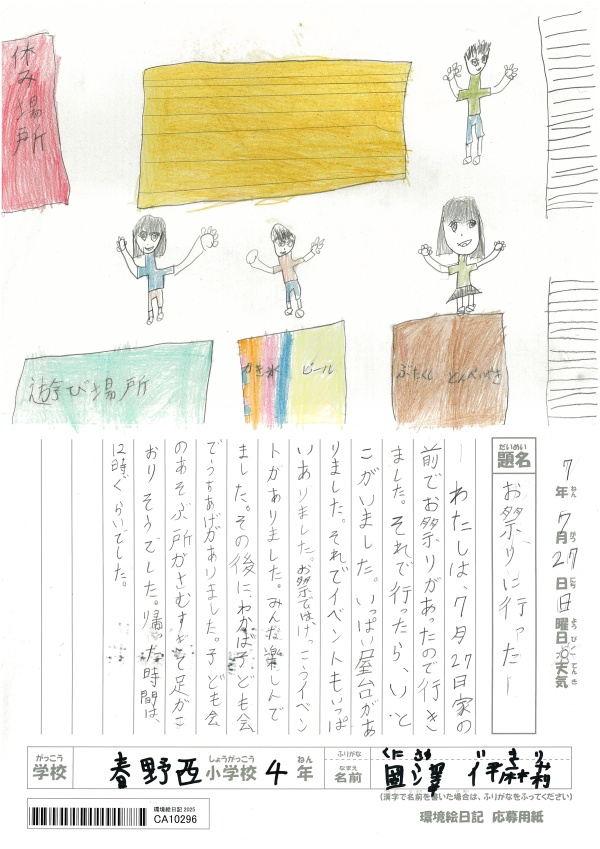 休み場所
遊び場所
かき氷
ビール
ぶたくし
とんぺいやき
7年7月27日日曜日 天気
ねん がつ にち ようび てんき
だいめい
題名
お祭りに行った
わたしは、7月27日家の
前でお祭りがあったので行き
ました。それで行ったら、いと
こがいました。いっぱい屋台があ
りました。それでイベントもいっぱ
いありました。お祭では、けっこうイベン
トがありました。みんな楽しんで
ました。その後に、わかば子ども会
でうちあげがありました。子ども会
のあそぶ所がさむすぎて足がこ
おりそうでした。帰った時間は、
12時ぐらいでした。
がっこう
学校
春野西
しょうがっこう
小学校
4
ねん
年
ふりがな
なまえ
名前
國澤
(漢字で名前を書いた場合は、ふりがなをふってください)
環境絵日記 2025
CA10296
環境絵日記 応募用紙